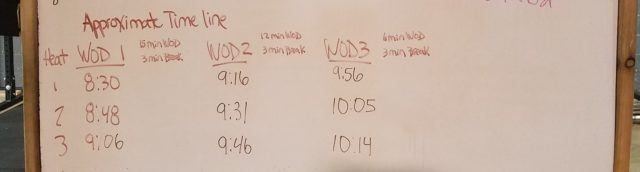 Approximate Time line
Heat WOD 1 15 min WOD 3 min Break WOD 2 12 min WOD 3 min Break WOD 3 6 min WOD 3 min Break
1 8:30 9:16 9:56
2 8:48 9:31 10:05
3 9:06 9:46 10:14